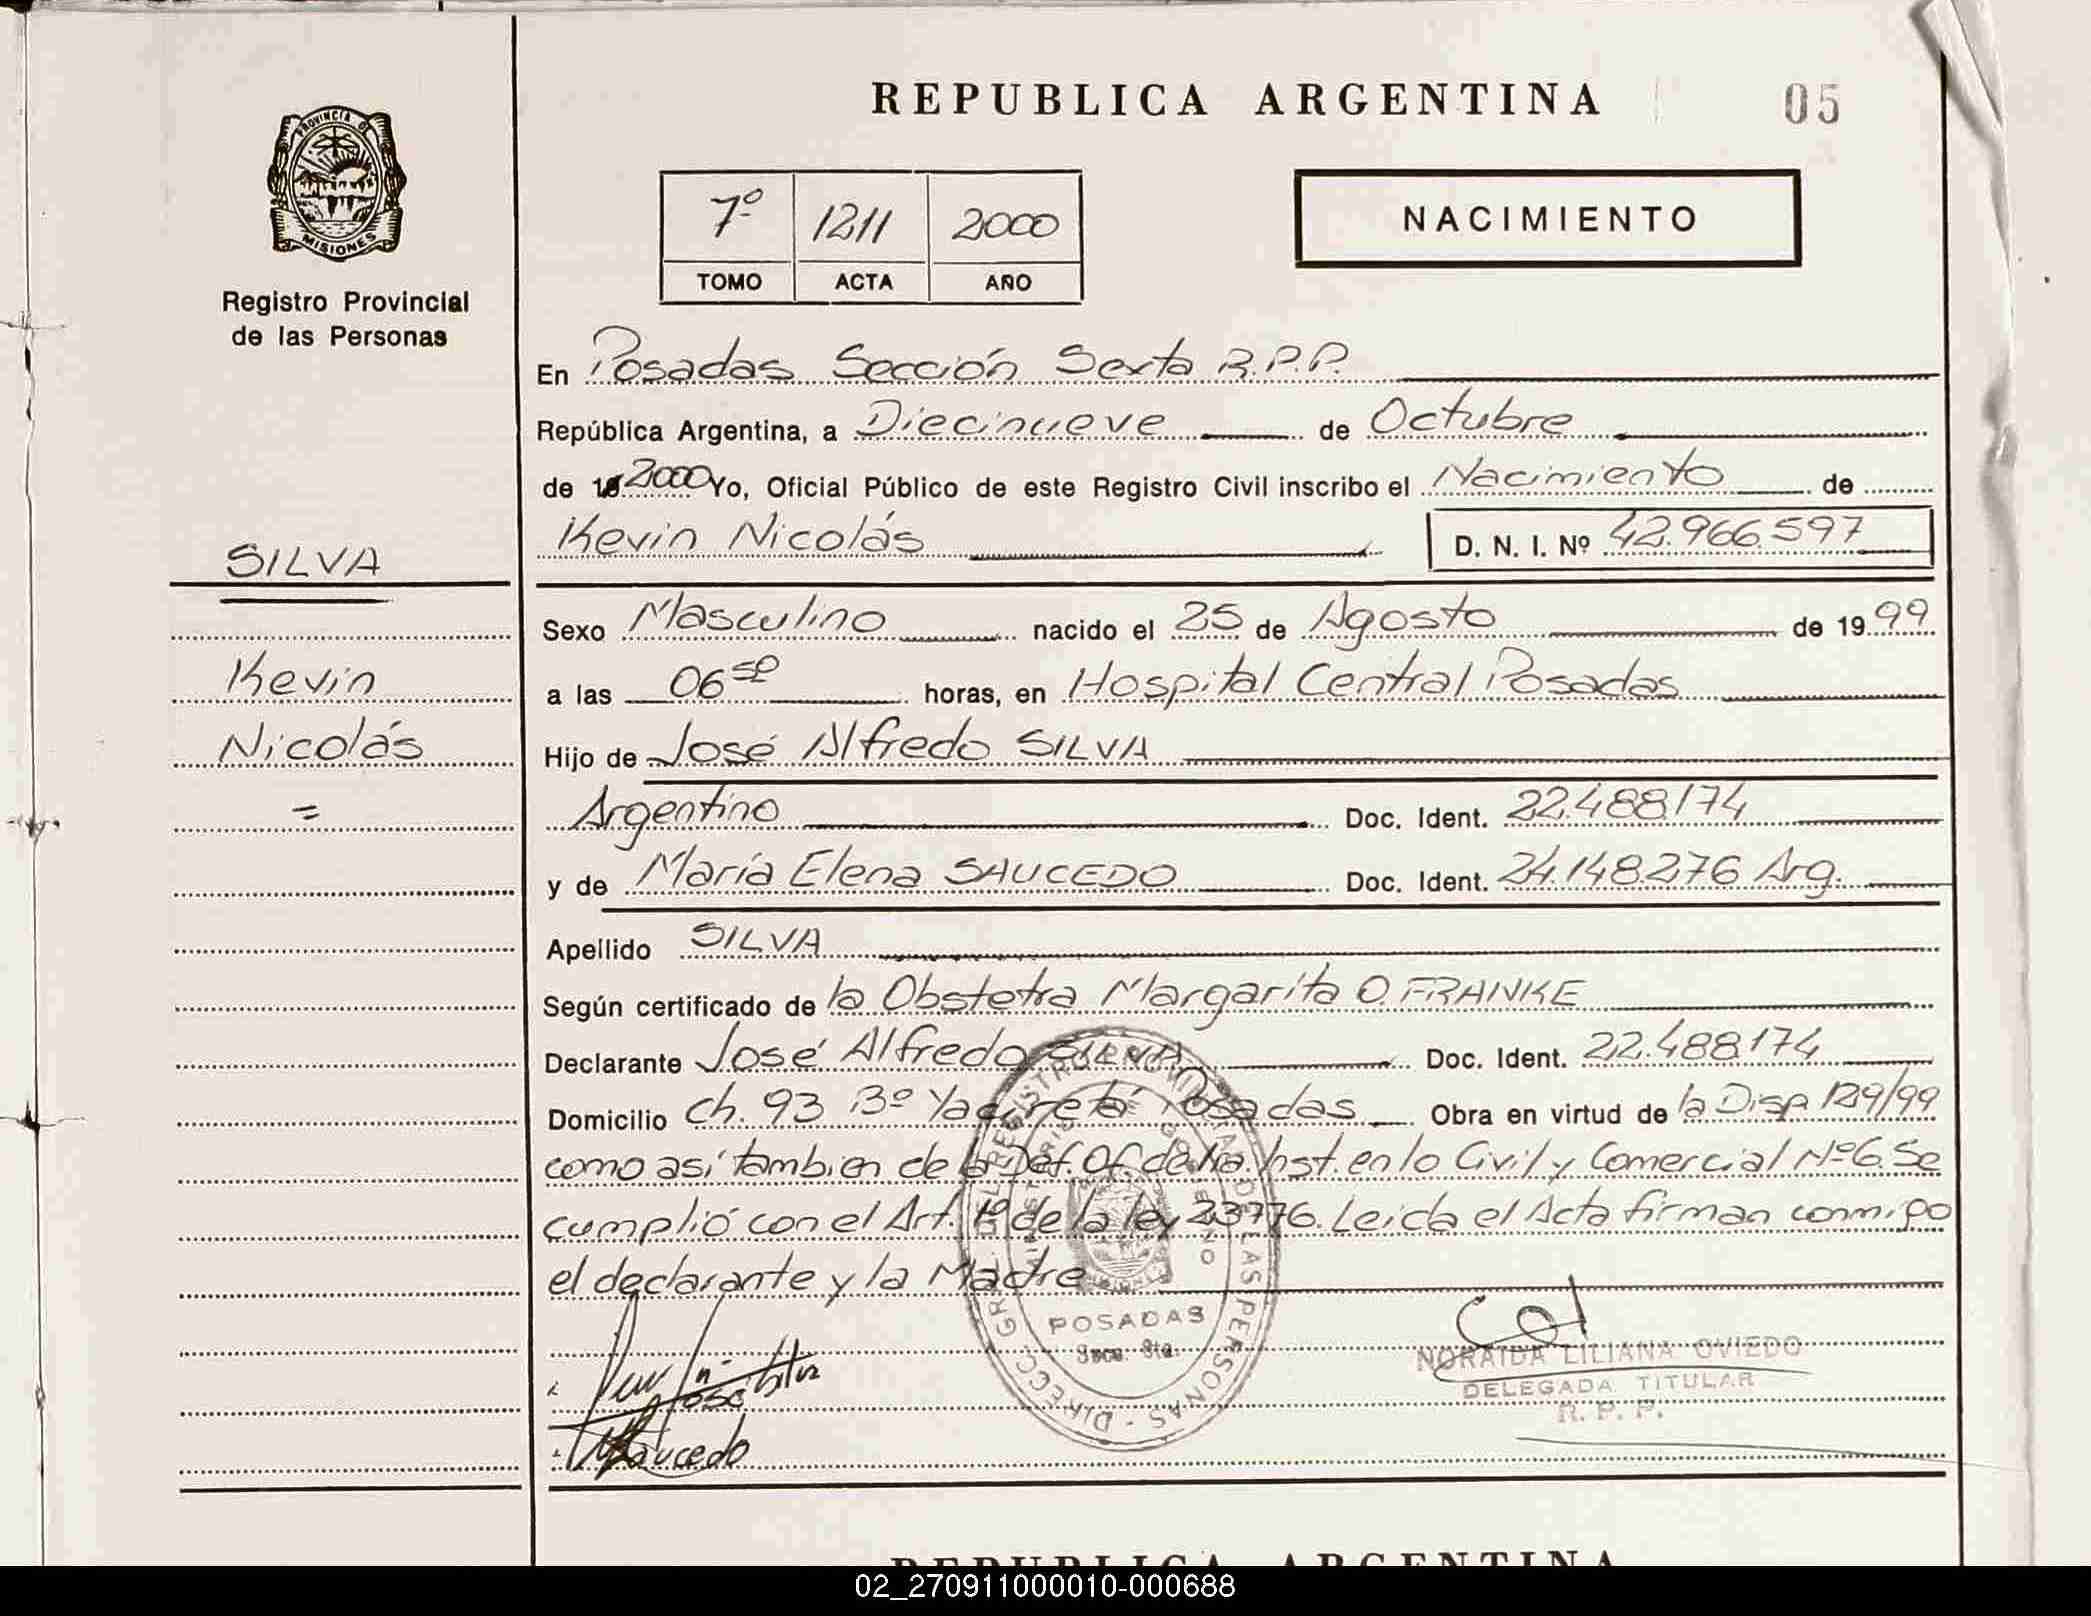 REPUBLICA ARGENTINA
05
PROVINCIA DE
MISIONES
Registro Provincial
de las Personas
7º 1211 2000
TOMO ACTA AÑO
NACIMIENTO
En Posadas Sección Sexta R.P.P.
República Argentina, a Diecinueve de Octubre
de 2000 Yo, Oficial Público de este Registro Civil inscribo el Nacimiento de
Kevin Nicolás D. N. I. Nº 42.966.597
SILVA
Kevin
Nicolás
=
Sexo Masculino nacido el 25 de Agosto de 1999
a las 06 50 horas, en Hospital Central Posadas
Hijo de José Alfredo SILVA
Argentino Doc. Ident. 22.488.174
y de María Elena SAUCEDO Doc. Ident. 24.148.276 Arg.
Apellido SILVA
Según certificado de la Obstetra Margarita O. FRANKE
Declarante José Alfredo SILVA Doc. Ident. 22.488.174
Domicilio Ch. 93 Bº Yacyretá Posadas Obra en virtud de la Disp. 129/99
como así tambien de la Def. Of. de 1ra. Inst. en lo Civil y Comercial Nº 6. Se
cumplió con el Art. 1º de la ley 23776. Leida el Acta firman conmigo
el declarante y la Madre
POSADAS
Secc. 6ta.
NORAIDA LILIANA OVIEDO
DELEGADA TITULAR
R. P. P.
José Silva
Saucedo
REPUBLICA ARGENTINA
02_270911000010-000688